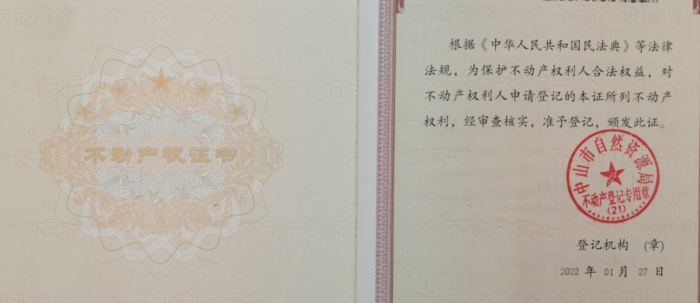 不动产权证书
根据《中华人民共和国民法典》等法律
法规，为保护不动产权利人合法权益，对
不动产权利人申请登记的本证所列不动产
权利，经审查核实，准予登记，颁发此证。
中山市自然资源局
不动产登记专用章
(21)
登记机构 (章)
2022 年 01 月 27 日